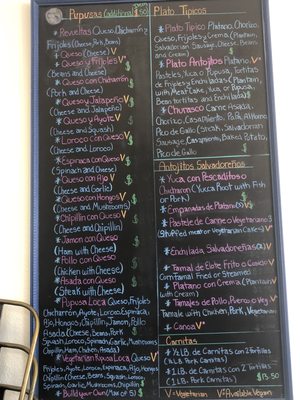 Pupusas (additional) $.50
* Revueltas Queso, Chicharron y
Frijoles (Cheese, Pork, Beans)
* Queso (Cheese) V
* Queso y Frijoles V
(Beans and Cheese)
* Queso con Chicharrón
(Pork and Cheese)
* Queso y Jalapeño V
(Cheese and Jalapeño)
* Queso y Ayote V
(Cheese and Squash)
* Loroco con Queso V
(Cheese and Loroco)
* Espinaca con Queso V
(Spinach and Cheese)
* Queso con Ajo V
(Cheese and Garlic)
* Queso con Hongos V
(Cheese and Mushrooms)
* Chipillin con Queso V
(Cheese and Chipillin)
* Jamon con Queso
(Ham with Cheese)
* Pollo con Queso
(Chicken with Cheese)
* Asada con Queso
(Steak with Cheese)
* Pupusa Loca Queso, Frijoles
Chicharron, Ayote, Loroco, Espinaca,
Ajo, Hongos, Chipillin, Jamon, Pollo
Asada (Cheese, Beans, Pork
Squash, Loroco, Spinach, Garlic, Mushrooms
Chipillin, Ham, Chicken, Asada)
* Vegetarian Pupusa Loca Queso V
Frijoles, Ayote, Loroco, Espinaca, Ajo, Hongos
Chipillin (Cheese, Beans, Squash, Loroco
Spinach, Garlic, Mushrooms, Chipillin)
* Build your Own (Max of 5)
Plato Tipicos
* Plato Tipico Platano, Chorizo
Queso, Frijoles y Crema (Plantain,
Salvadorian Sausage, Cheese, Beans
and Cream)
* Plato Antojitos Platano,
Pasteles, Yuca o Pupusa, Tortitas
de Frijoles y Enchilada (Plantain,
with Meat Cake, Yuca, or Pupusa,
Bean tortitas and Enchilada)
* Churrasco Carne Asada,
Chorizo, Casamiento, Papa Al Horno
Pico de Gallo (Steak, Salvadorian
Sausage, Casamiento, Baked Potato,
Pico de Gallo
Antojitos Salvadoreños
* Yuca con Pescaditos o
Chicharron (Yuca Root with Fish
or Pork)
* Empanadas de Platano
* Pasteles de Carne o Vegetariano
(Stuffed meat or Vegetarian Cakes) V
* Enchilada Salvadoreñas
* Tamal de Elote Frito o Cocido
(Corn tamal Fried or Steamed)
* Platano con Crema (Plantain
with Cream)
* Tamales de Pollo, Puerco o Veg
Tamale with Chicken, Pork, Vegetarian
* Canoa V
Carnitas
* ½ LB. de Carnitas con 2 Tortillas
(½ LB. Pork Carnitas)
* 1 LB. de Carnitas con 2 Tortillas
(1 LB. Pork Carnitas)
V=Available Vegan